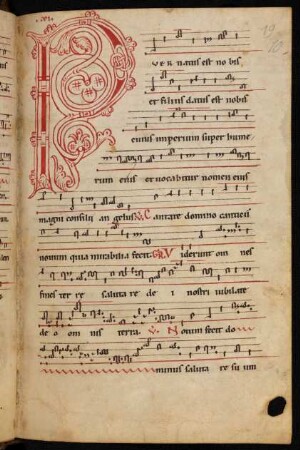 P
VER natus est nobis
et filius datus est nobis
cuius imperium super hume
rum eius et uocabitur nomen eius
magni consilii angelus Cantate domino canticu
nouum quia mirabilia fecit Viderunt om nes
fines ter re saluta re de i nostri iubilate
de o om nis terra V. Notum fecit do
minus saluta re su um